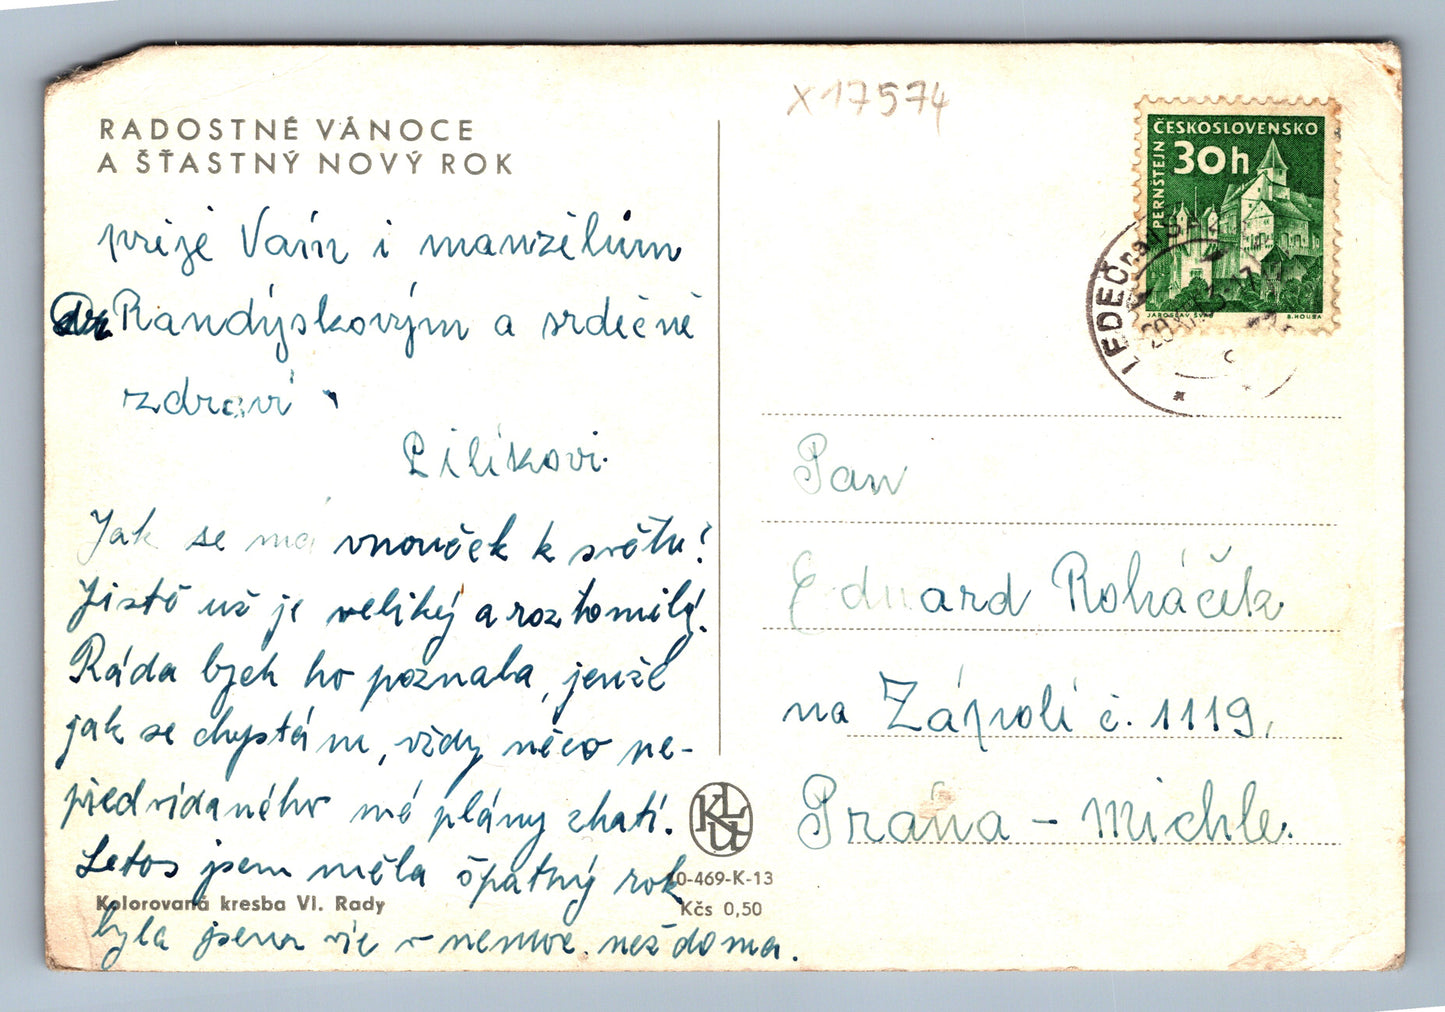 RADOSTNÉ VÁNOCE
A ŠŤASTNÝ NOVÝ ROK
přeje Vám i manželům
Randýskovým a srdečně
zdraví
Pilíkovi.
Jak se má vnouček k světu?
Jistě už je veliký a roztomilý.
Ráda bych ho poznala, jenže
jak se chystám, vždy něco ne-
předvídaného mé plány zhatí.
Letos jsem měla špatný rok
byla jsem víc v nemoc. než doma.
Kolorovaná kresba Vl. Rady
KLU
10-469-K-13
Kčs 0,50
X17574
ČESKOSLOVENSKO
30h
PERNŠTEJN
JAROSLAV ŠVÁB
B. HOUSA
LEDEČ
Pan
Eduard Roháček
na Zápolí č. 1119,
Praha - Michle.